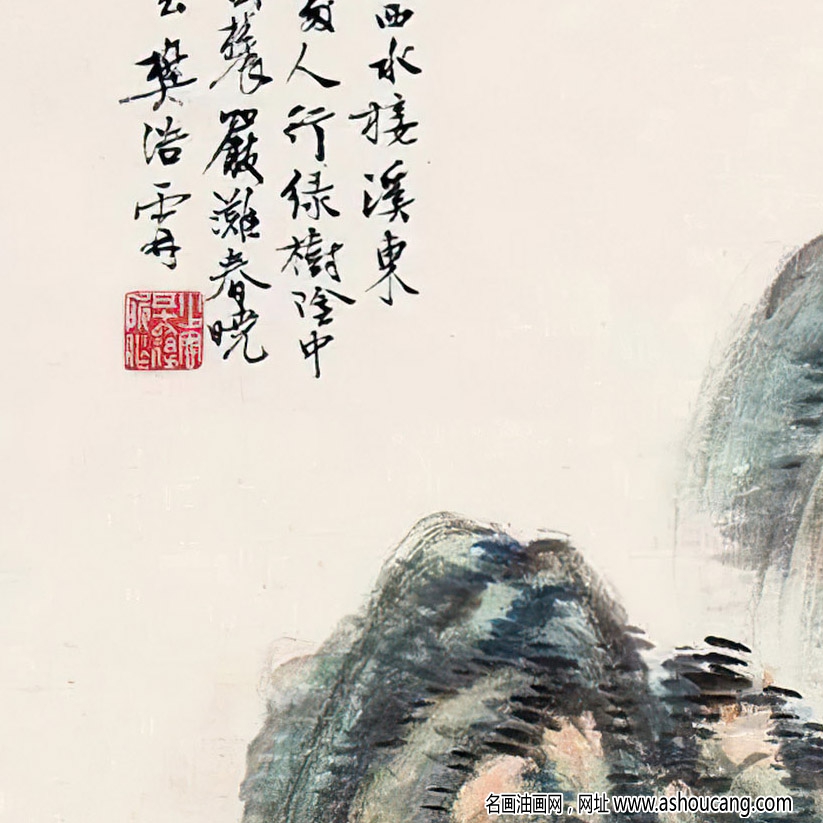 西水接溪東
人行绿樹陰中
嚴灘春曉
樊浩霖
名画油画网，网址 www.ashoucang.com